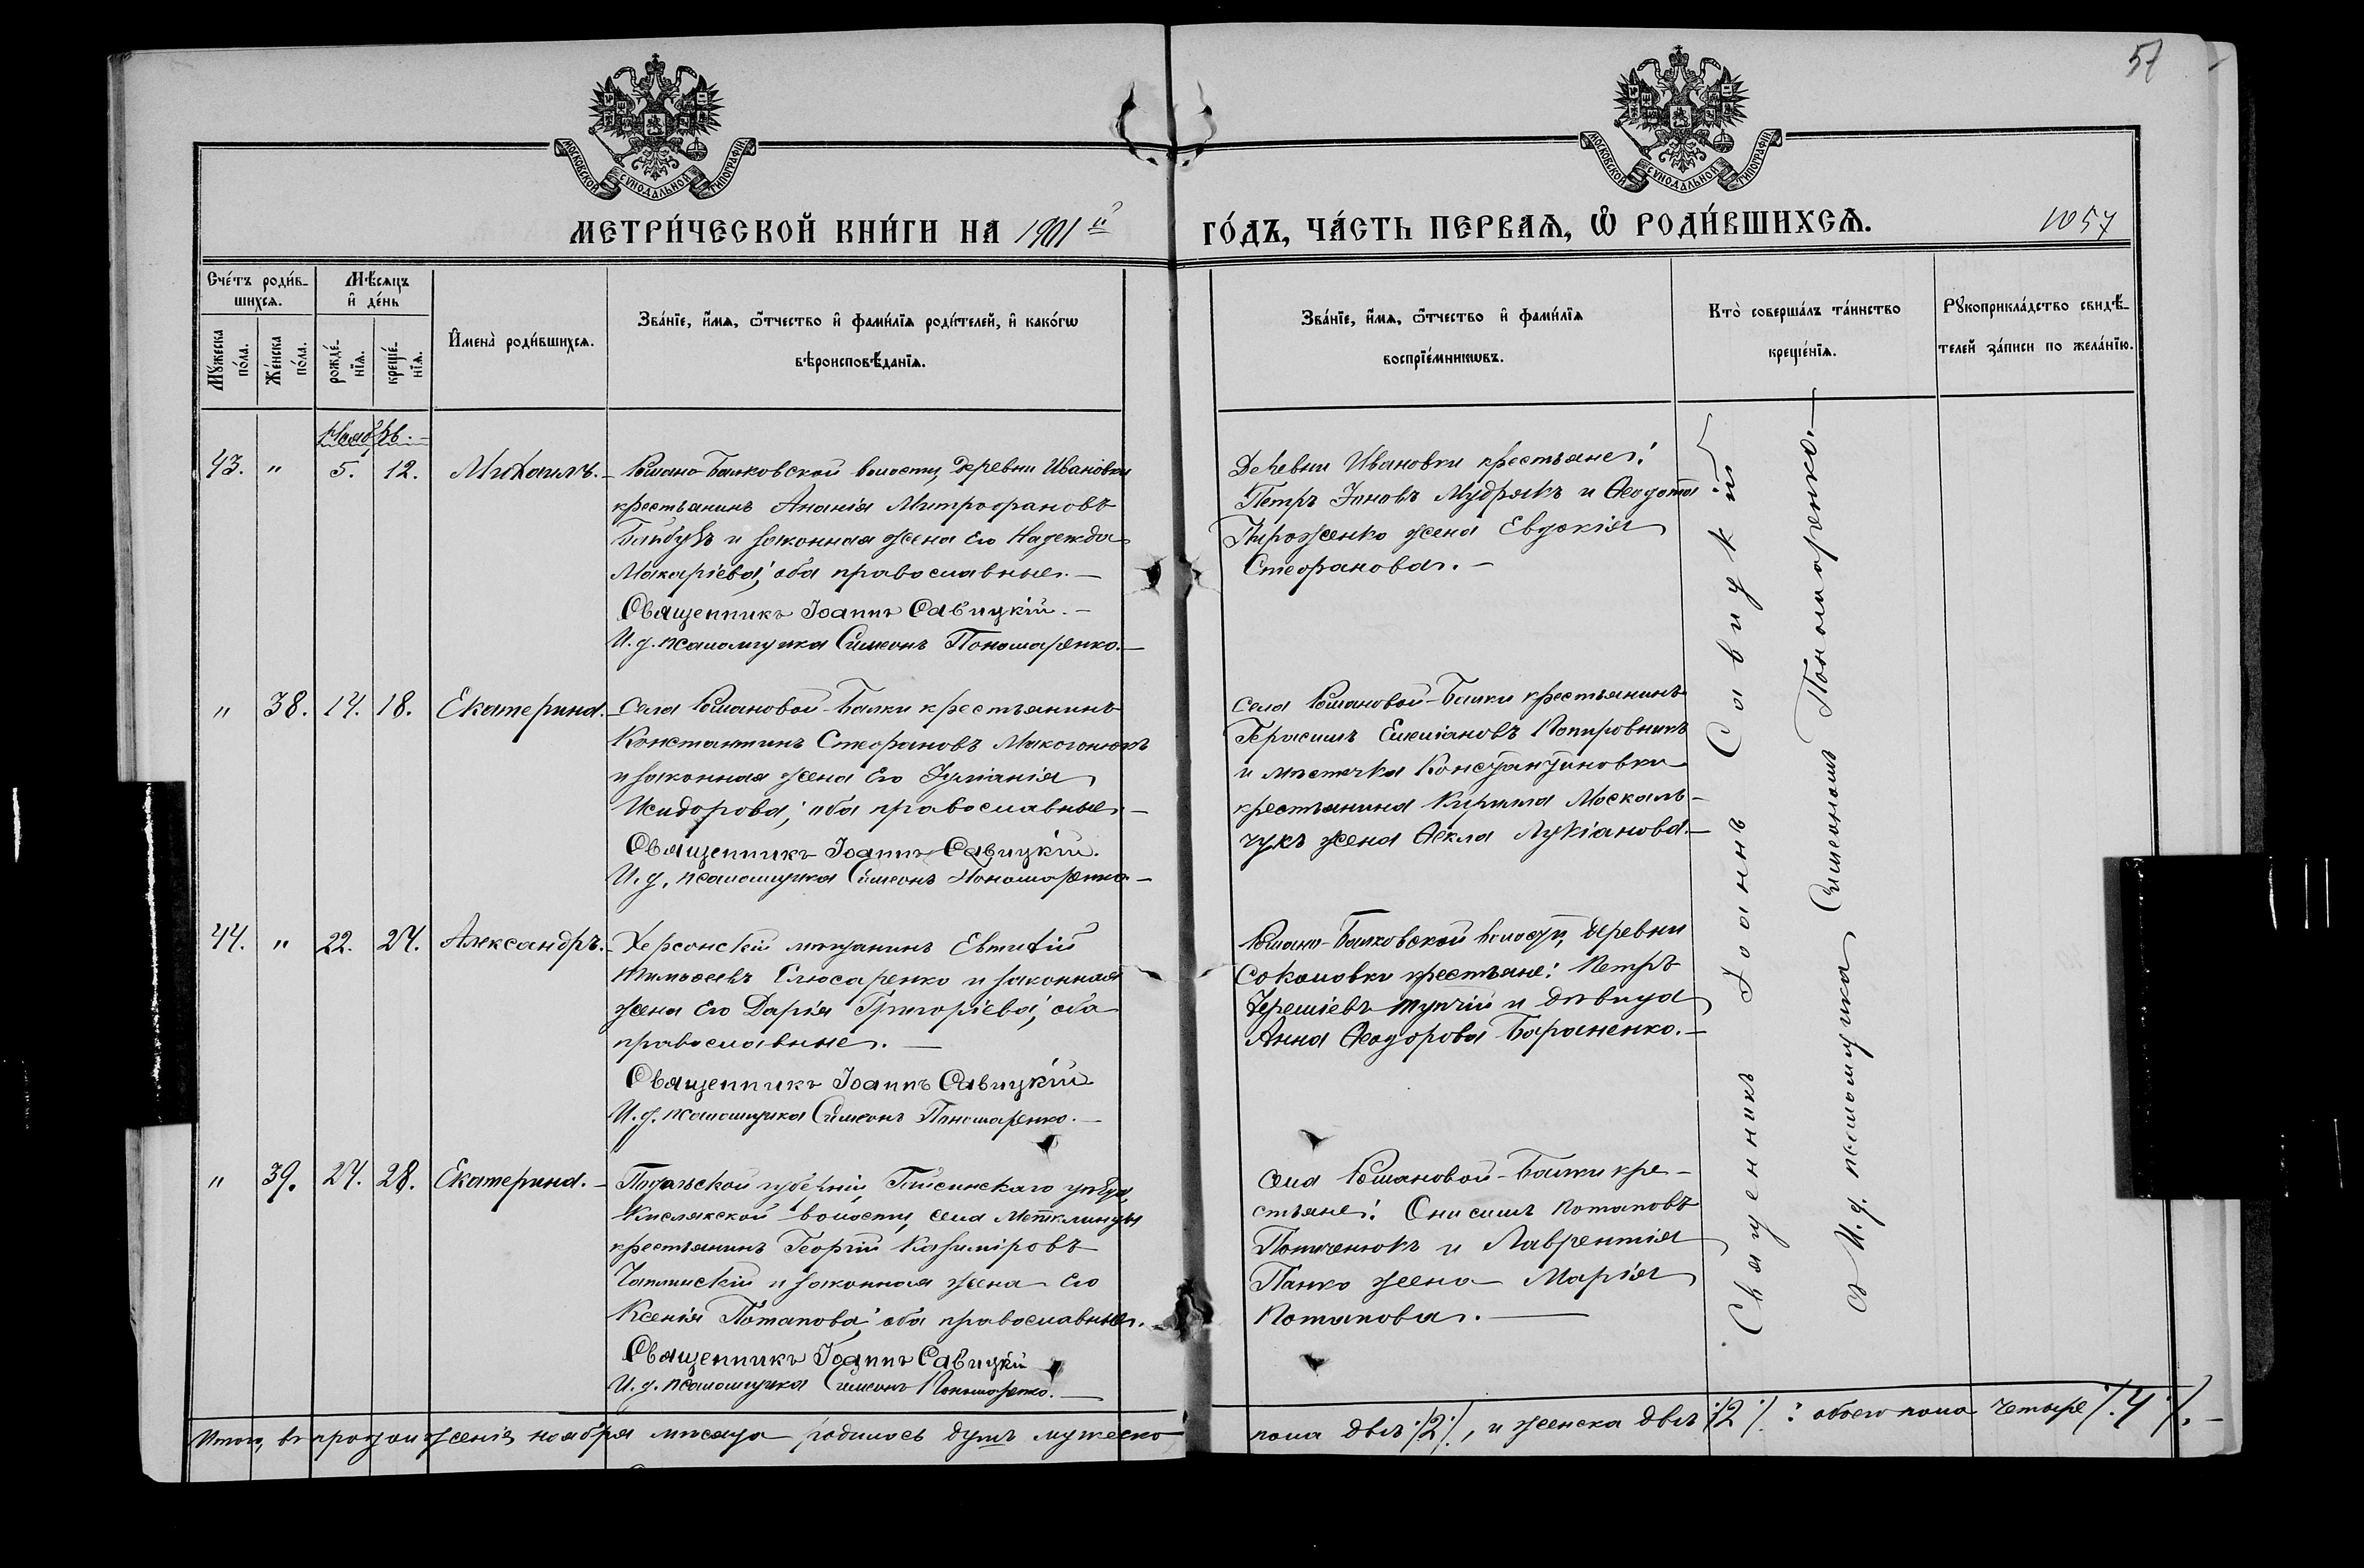 57
МОСКОВСКОЙ СѴНОДАЛЬНОЙ ТИПОГРАФІИ
МОСКОВСКОЙ СѴНОДАЛЬНОЙ ТИПОГРАФІИ
МЕТРИ́ЧЕСКОЙ КНИ́ГИ НА 1901й
ГО́ДЪ, ЧА́СТЬ ПЕРВАѦ, Ѡ РОДИ́ВШИХСѦ.
1057
Сче́тъ роди́в-
шихсѧ.
Мѣ́сѧцъ
и҆ де́нь
Мꙋ́жеска по́ла.
Же́нска по́ла.
рожде́-
нїѧ.
креще́-
нїѧ.
И҆мена̀ роди́вшихсѧ.
Зва́нїе, и҆́мѧ, ѻ҆́тчество и҆ фами́лїѧ роди́телей, и҆ како́гѡ
вѣроисповѣ́данїѧ.
Зва́нїе, и҆́мѧ, ѻ҆́тчество и҆ фами́лїѧ
воспрїе́мникѡвъ.
Кто̀ соверша́лъ та́инство
креще́нїѧ.
Рꙋкоприкла́дство свидѣ́-
телей за́писи по жела́нїю.
Ноябрь.
43. " 5. 12. Михаилъ.
Романо-Балковской волости, деревни Ивановки
крестьянинъ Ананія Митрофановъ
Байбузъ и законная жена его Надежда
Макаріева; оба православные.
Священникъ Іоаннъ Савицкій.
И. д. псаломщика Симеонъ Пономаренко.
Деревни Ивановки крестьяне:
Петръ Іоновъ Мудрякъ и Ѳеодота
Пироженко жена Евдокія
Стефанова.
" 38. 14. 18. Екатерина.
Села Романовой-Балки крестьянинъ
Константинъ Стефановъ Макогонюкъ
и законная жена его Іуліанія
Исидорова; оба православные.
Священникъ Іоаннъ Савицкій.
И. д. псаломщика Симеонъ Пономаренко
Села Романовой-Балки крестьянинъ
Герасимъ Емиліановъ
и мѣстечка Константиновки
крестьянина Кирилла Москаль-
чукъ жена Ѳекла Лукіанова.
44. " 22. 24. Александръ.
Херсонскій мѣщанинъ Евтихій
Тимоѳеевъ Слюсаренко и законная
жена его Дарія Григоріева; оба
православные.
Священникъ Іоаннъ Савицкій
И. д. псаломщика Симеонъ Пономаренко.
Романо-Балковской волости, деревни
Соколовки крестьяне: Петръ
Іереміевъ Тупчій и дѣвица
Анна Ѳеодорова Бараненко.
" 39. 24. 28. Екатерина.
Подольской губерніи, Гайсинскаго уѣзда,
Кислякской волости, села Метклинцы
крестьянинъ Георгій Казиміровъ
и законная жена его
Ксенія Потапова; оба православные.
Священникъ Іоаннъ Савицкій
И. д. псаломщика Симеонъ Пономаренко.
Села Романовой-Балки кре-
стьяне: Онисимъ Потаповъ
и Лаврентія
Панко жена Марія
Потапова.
Священникъ Іоаннъ Савицкій
съ И. д. псаломщика Симеономъ Пономаренко.
Итого, въ продолженіи ноября мѣсяца родилось душъ мужеско
пола двѣ /2/, и женска двѣ /2/: обоего пола четыре /4/.